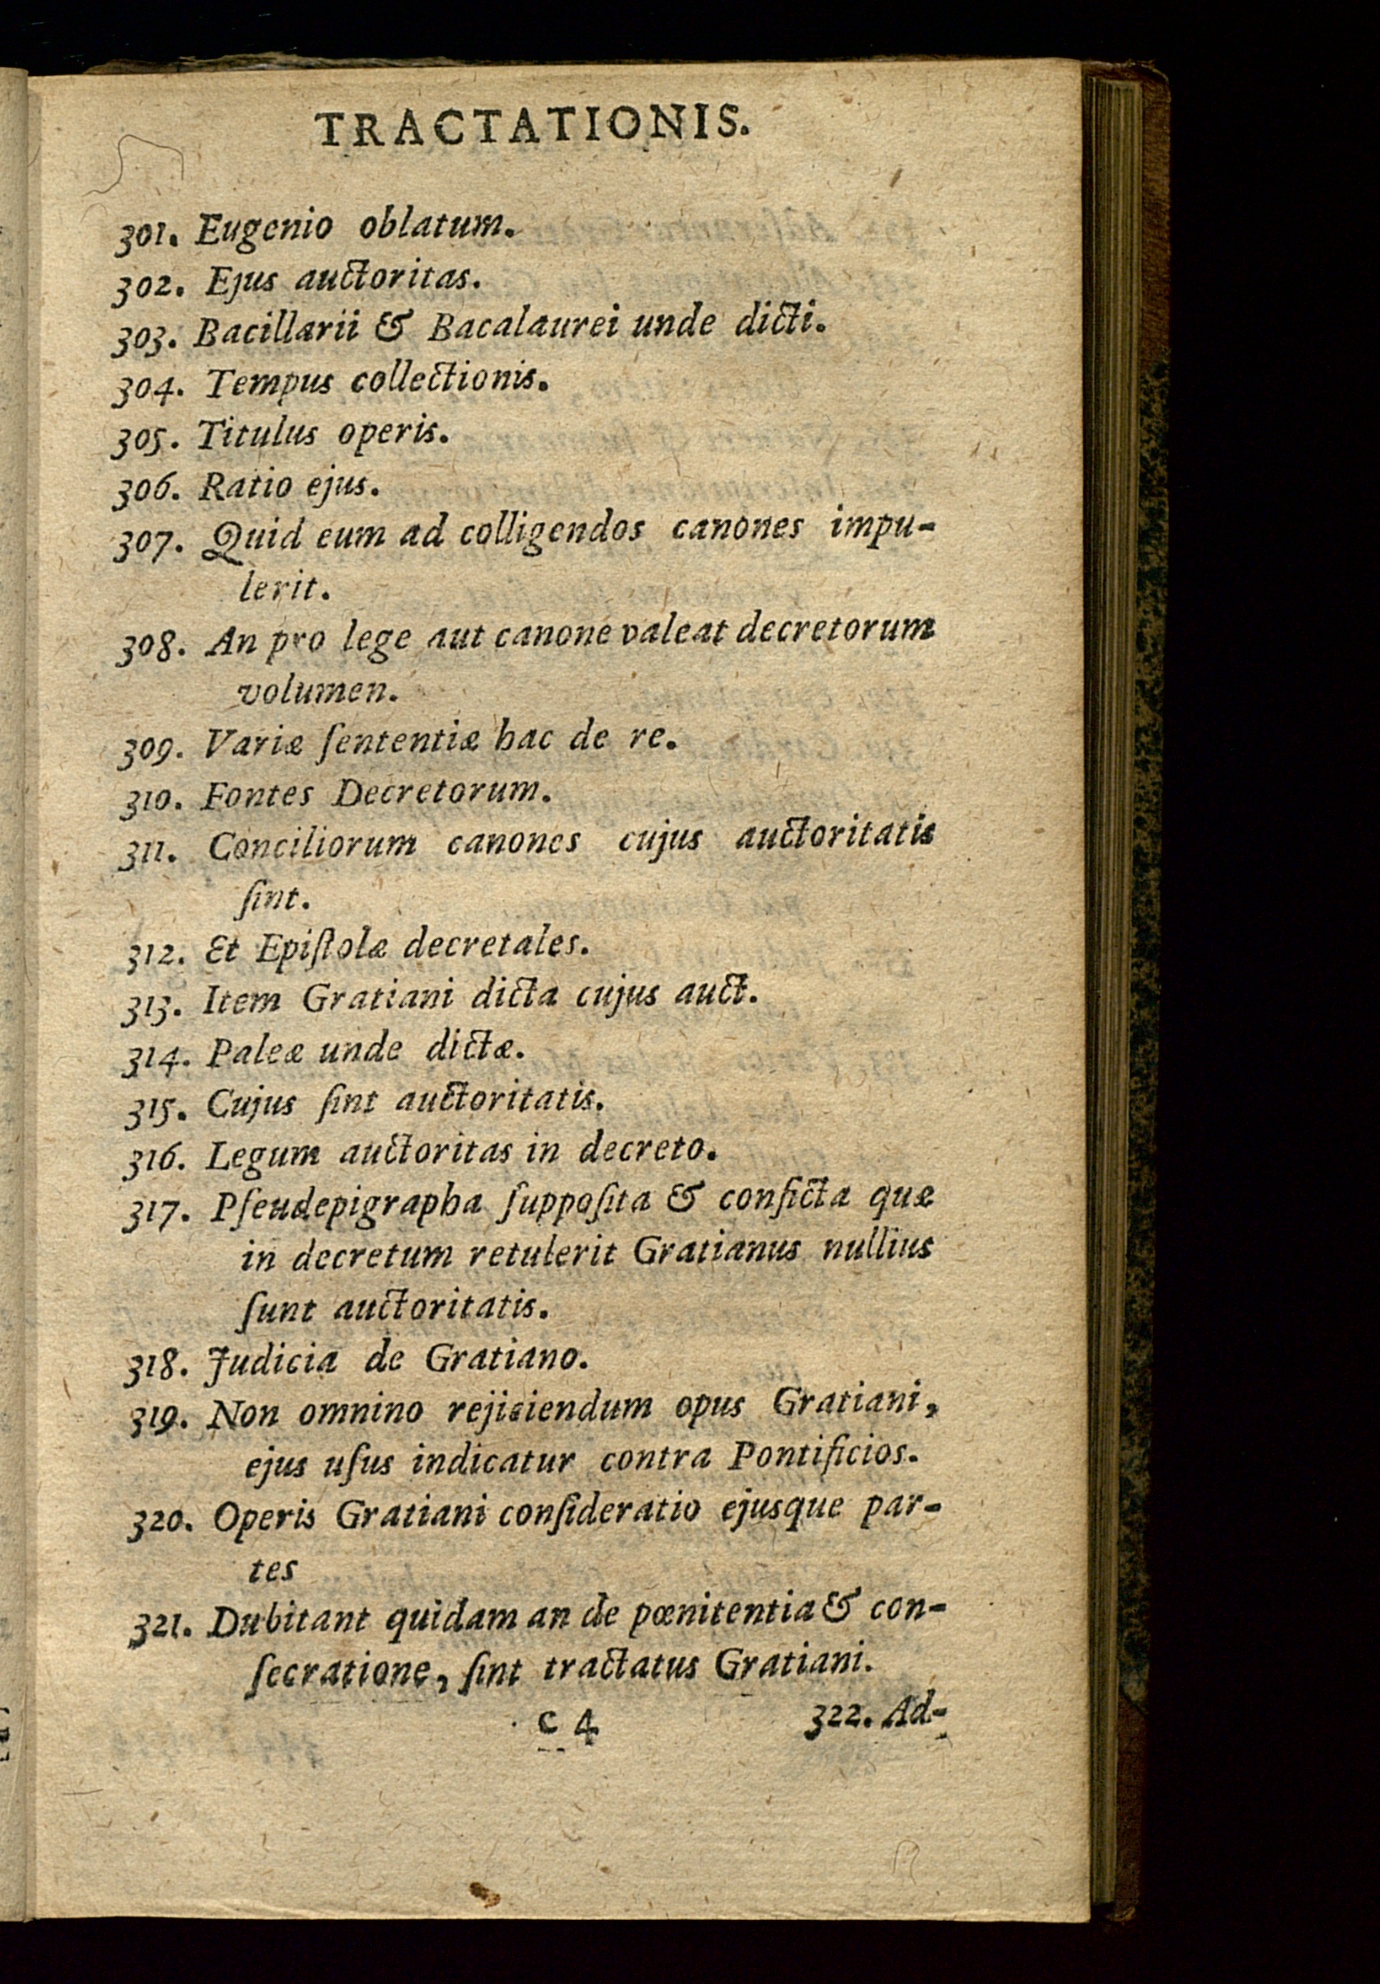 TRACTATIONIS.
301. Eugenio oblatum.
302. Ejus auctoritas.
303. Bacillarii & Bacalaurei unde dicti.
304. Tempus collectionis.
305. Titulus operis.
306. Ratio ejus.
307. Quid eum ad colligendos canones impu-
lerit.
308. An pro lege aut canone valeat decretorum
volumen.
309. Variæ ſententiæ hac de re.
310. Fontes Decretorum.
311. Conciliorum canones cujus auctoritatis
ſint.
312. Et Epiſtolæ decretales.
313. Item Gratiani dicta cujus auct.
314. Paleæ unde dictæ.
315. Cujus ſint auctoritatis.
316. Legum auctoritas in decreto.
317. Pſeudepigrapha ſuppoſita & conficta quæ
in decretum retulerit Gratianus nullius
ſunt auctoritatis.
318. Judicia de Gratiano.
319. Non omnino rejiciendum opus Gratiani,
ejus uſus indicatur contra Pontificios.
320. Operis Gratiani conſideratio ejusque par-
tes
321. Dubitant quidam an de pœnitentia & con-
ſecratione, ſint tractatus Gratiani.
c 4 322. Ad-